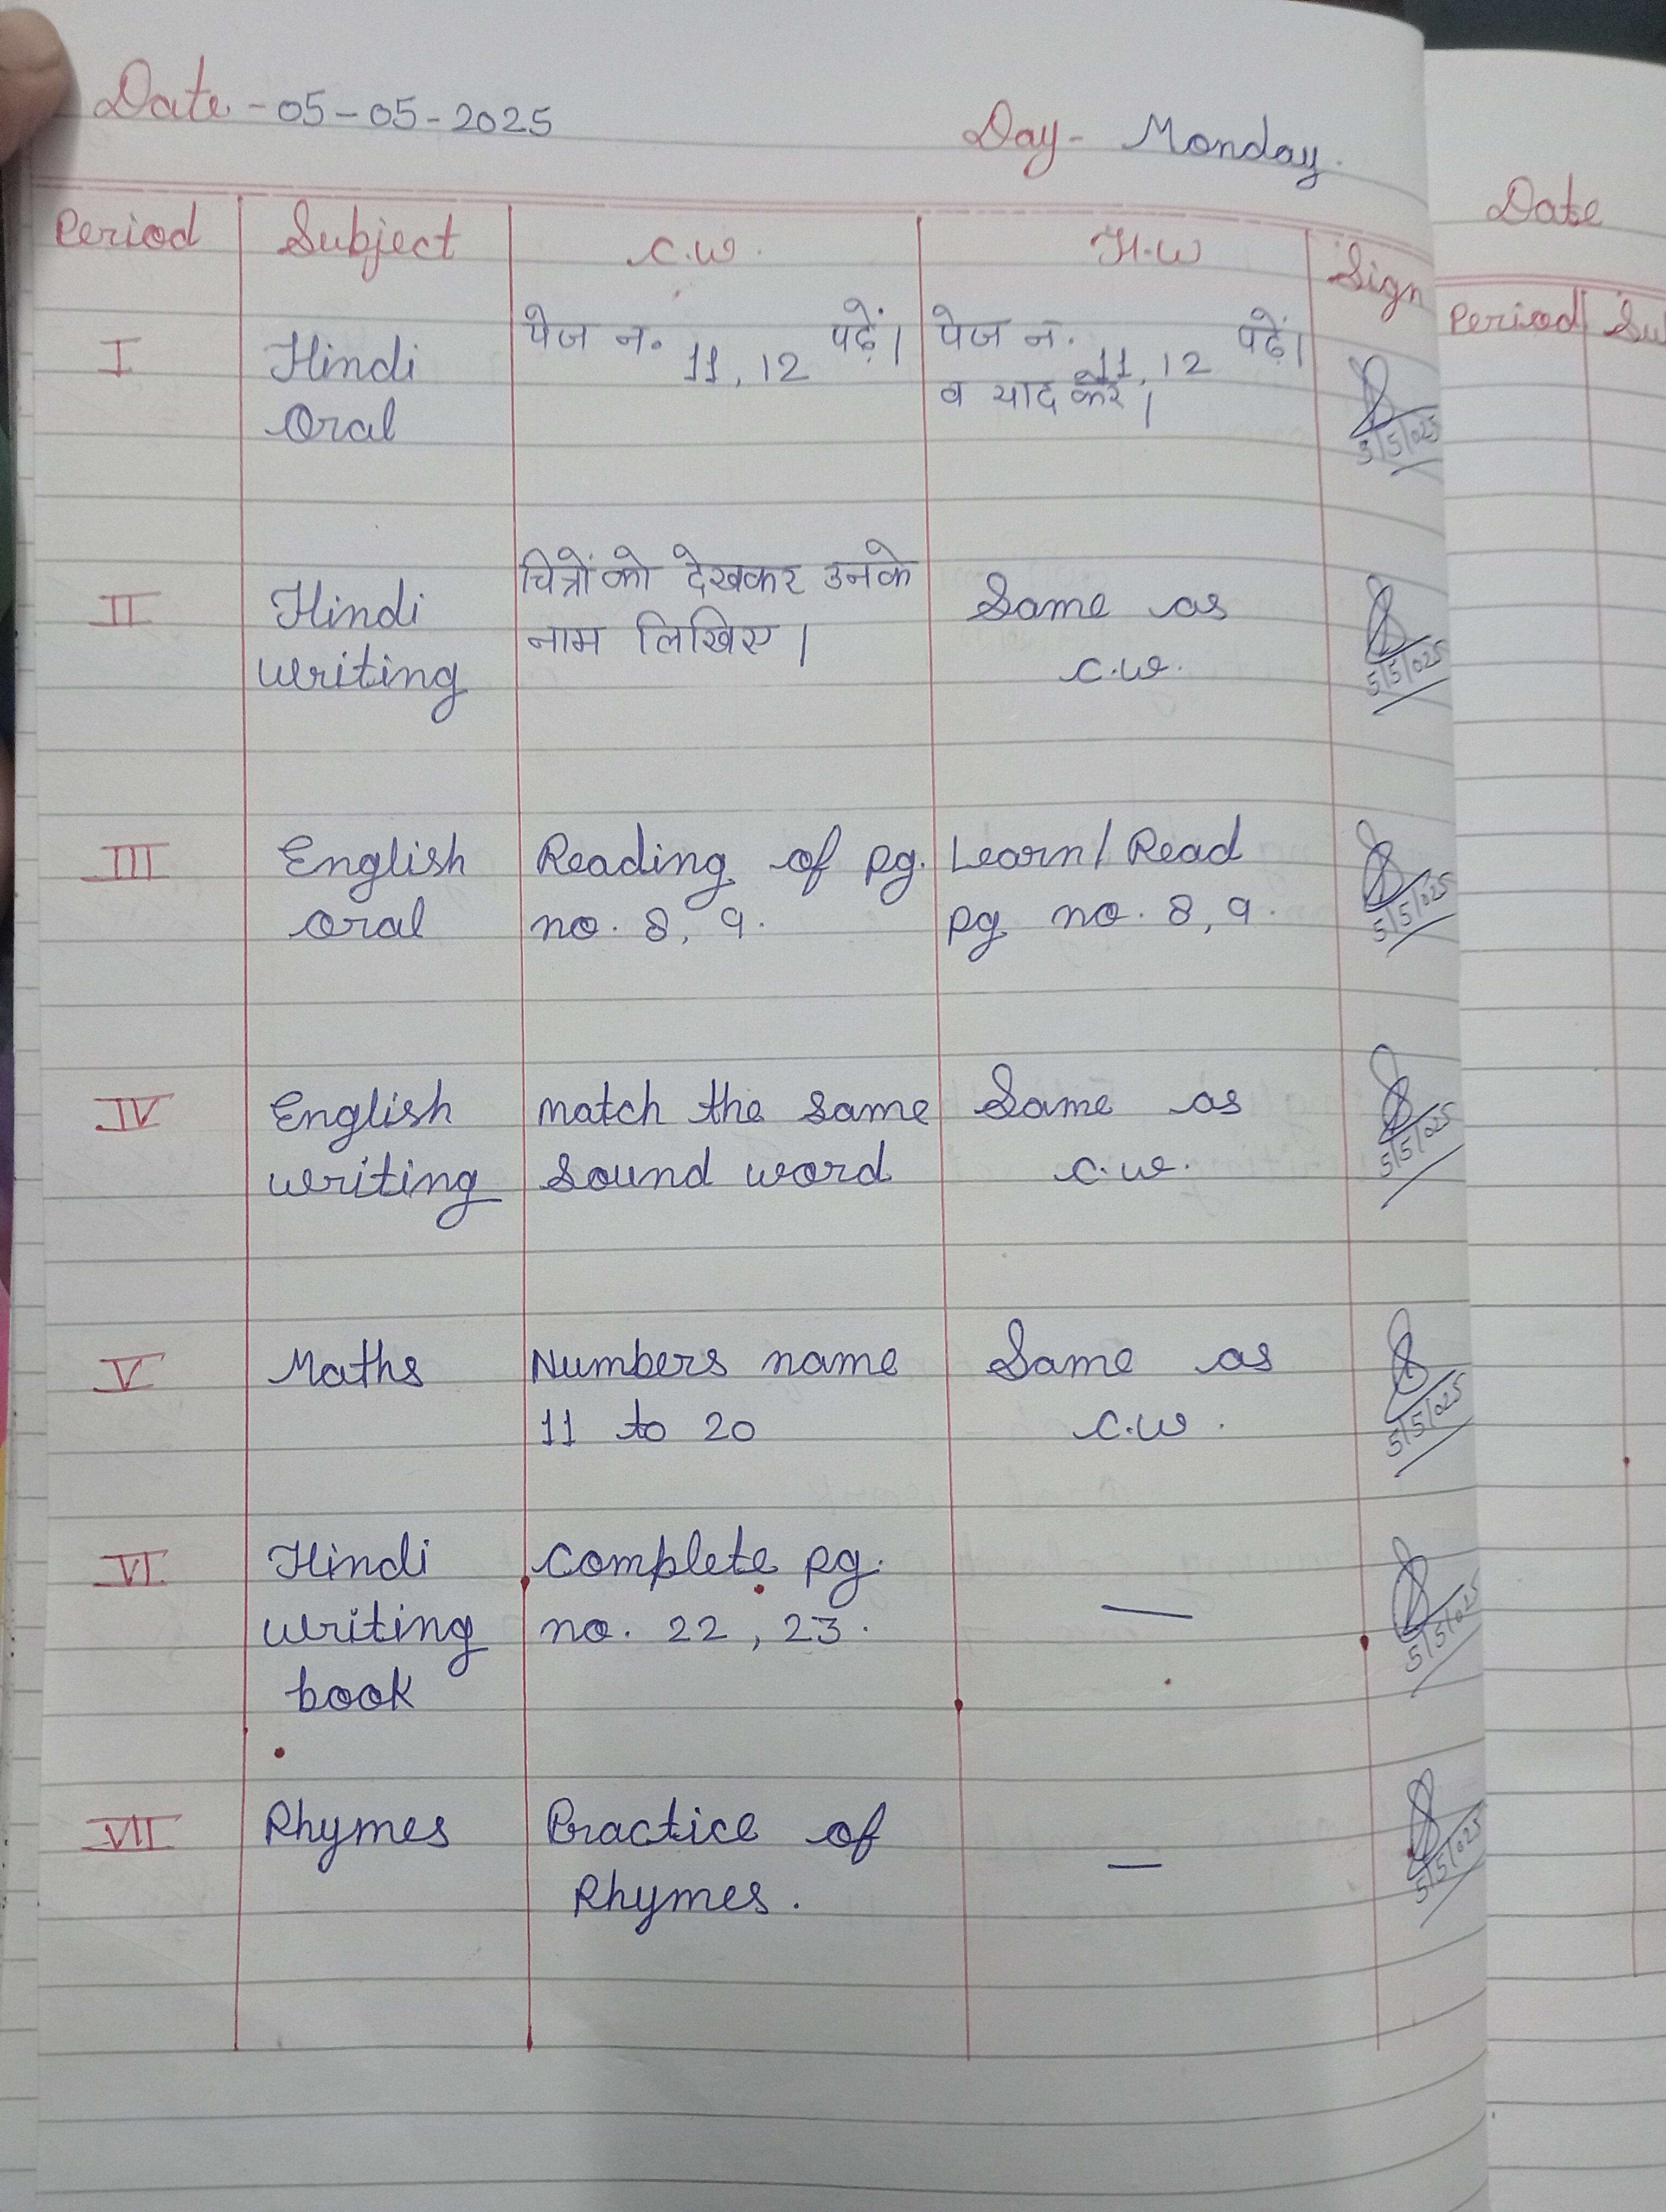 Date - 05-05-2025 Day - Monday.
Period Subject C.W. H.W Sign
I Hindi Oral
पेज न. 11, 12 पढ़ें।
पेज न. 11, 12 पढ़ें।
व याद करें।
5/5/025
II Hindi writing
चित्रों को देखकर उनके
नाम लिखिए।
Same as
C.W.
5/5/025
III English Oral
Reading of pg.
no. 8, 9.
Learn/Read
pg no. 8, 9.
5/5/025
IV English writing
match the same
sound word
Same as
C.W.
5/5/025
V Maths
Numbers name
11 to 20
Same as
C.W.
5/5/025
VI Hindi writing book
Complete pg.
no. 22, 23.
—
5/5/025
VII Rhymes
Practice of
Rhymes.
—
5/5/025
Date
Period Su